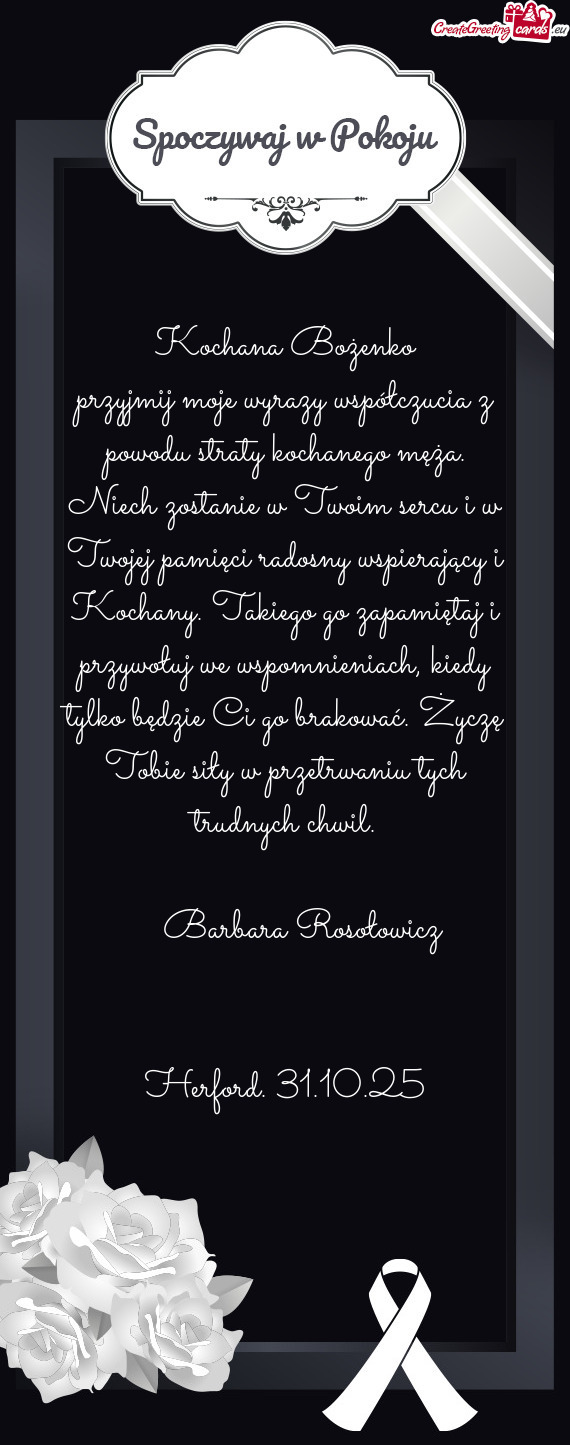 CreateGreeting cards.eu
Spoczywaj w Pokoju
Kochana Bożenko
przyjmij moje wyrazy współczucia z
powodu straty kochanego męża.
Niech zostanie w Twoim sercu i w
Twojej pamięci radosny wspierający i
Kochany. Takiego go zapamiętaj i
przywołuj we wspomnieniach, kiedy
tylko będzie Ci go brakować. Życzę
Tobie siły w przetrwaniu tych
trudnych chwil.
Barbara Rosołowicz
Herford. 31.10.25